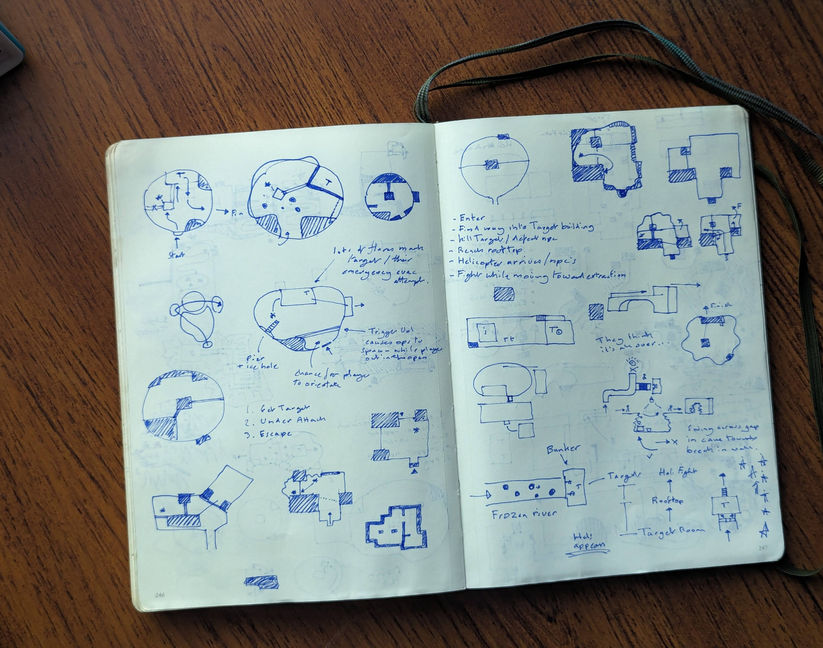 Fin
Start
T
flares mark
target / their
emergency evac
attempt.
T
Trigger Vol
causes ops to
spawn - while player
out in the open
Pier
+ ice hole
chance for player
to orientate
1. Get Target
2. Under Attack
3. Escape
246
- Enter
- Find way into Target building
- Kill Target / Defeat npc
- Reach rooftop
- Helicopter arrives / npc's
- Fight while moving toward extraction
F
T
Finish
They think
it's all over...
Swing across gap
in cave towards
break in wall
X
Bunker
T
Target
Heli Fight
Rooftop
Target Room
Frozen river
T
Heli
appears
247